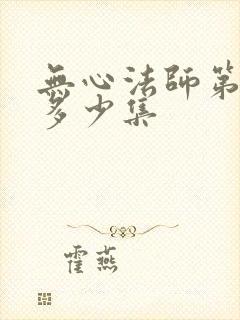 無心法師第
多少集
霍燕